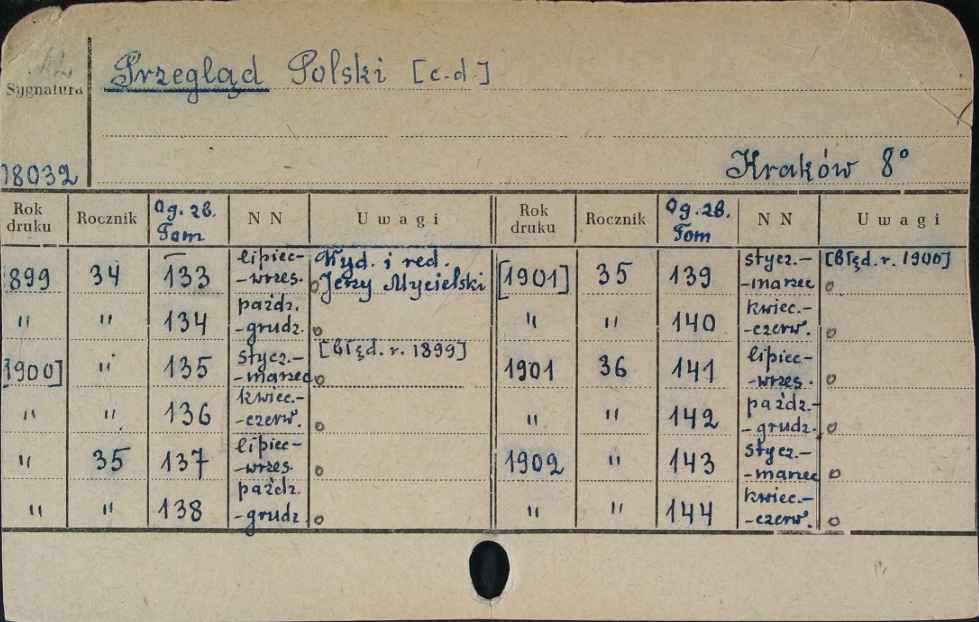 Przegląd Polski [c.d.]
Sygnatura
18032
Kraków 8°
Rok druku Rocznik Og. zb. Tom N N Uwagi Rok druku Rocznik Og. zb. Tom N N Uwagi
1899 34 133 lipiec--wrzes. Wyd. i red. Jerzy Mycielski [1901] 35 139 stycz.--marzec [Błęd. r. 1900]
" " 134 paźdz.-grudz. " " 140 kwiec.--czerw.
[1900] " 135 stycz.--marzec [Błęd. r. 1899] 1901 36 141 lipiec--wrzes.
" " 136 kwiec.--czerw. " " 142 paźdz.--grudz.
" 35 137 lipiec--wrzes. 1902 " 143 stycz.--marzec
" " 138 paźdz.-grudz. " " 144 kwiec.--czerw.